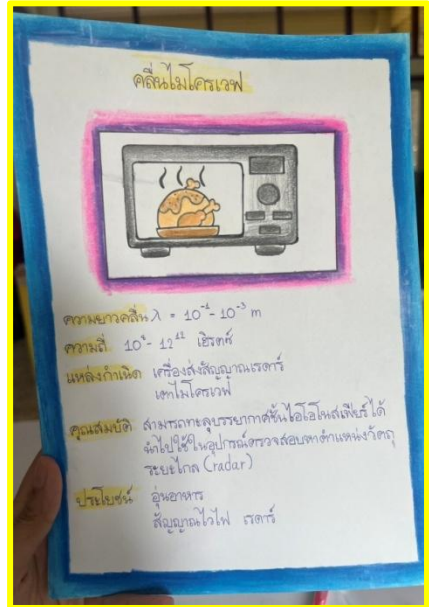 คลื่นไมโครเวฟ
ความยาวคลื่น λ = 10⁻¹ - 10⁻³ m
ความถี่ 10⁹ - 12¹² เฮิรตซ์
แหล่งกำเนิด เครื่องส่งสัญญาณเรดาร์
เตาไมโครเวฟ
คุณสมบัติ สามารถทะลุบรรยากาศชั้นไอโอโนสเฟียร์ได้
นำไปใช้ในอุปกรณ์ตรวจสอบหาตำแหน่งวัตถุ
ระยะไกล (radar)
ประโยชน์ อุ่นอาหาร
สัญญาณไวไฟ เรดาร์